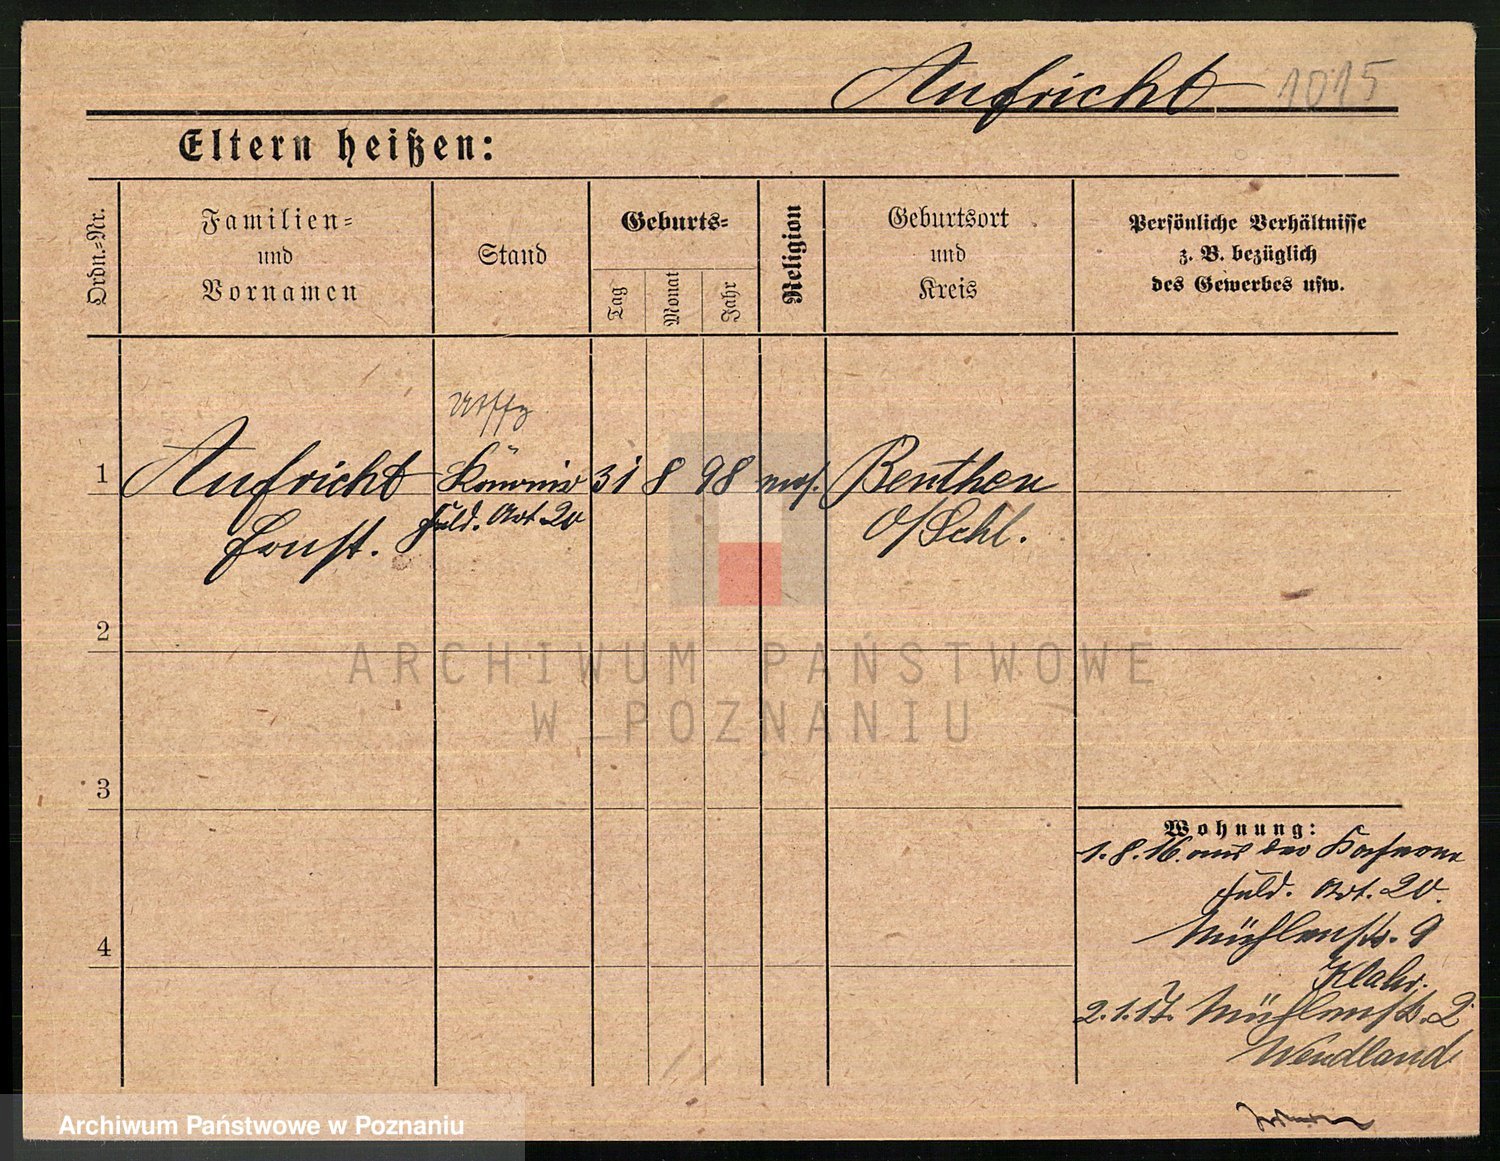 Aufricht 1015
Eltern heißen:
Ordn.-Nr.
Familien-
und
Vornamen
Stand
Geburts-
Tag
Monat
Jahr
Religion
Geburtsort
und
Kreis
Persönliche Verhältnisse
z. B. bezüglich
des Gewerbes usw.
Utffz
1 Aufricht Kanonier 31 8 98 mos. Beuthen
Ernst. Feld. Art. 20 O/Schl.
2
3
4
Wohnung:
1.8.16. aus der Kaserne
Feld. Art. 20.
Mühlenstr. 9
Klahr.
2.1.17. Mühlenstr. 2
Wendland
ARCHIWUM PAŃSTWOWE
W POZNANIU
Archiwum Państwowe w Poznaniu